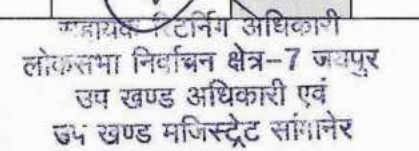 सहायक रिटर्निंग अधिकारी
लोकसभा निर्वाचन क्षेत्र-7 जयपुर
उप खण्ड अधिकारी एवं
उप खण्ड मजिस्ट्रेट सांगानेर